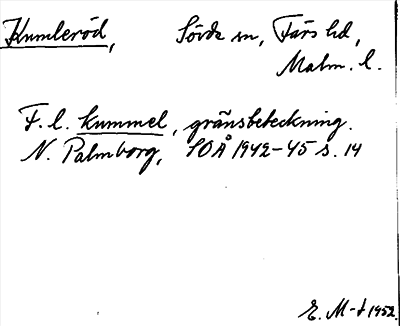 Kumleröd, Sövde sn, Färs hd,
Malm. l.
F. l. kummel, gränsbeteckning.
N. Palmborg, SOÅ 1942-45 s. 14
E. M-t 1952.